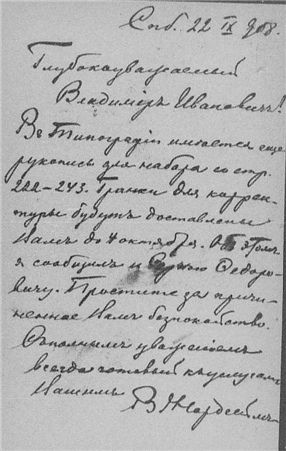 Спб. 22 IX 908.
Глубокоуважаемый
Владимiръ Ивановичъ!
Въ Типографiи имѣется еще
рукопись для набора со стр.
222–243. Гранки для коррек-
туры будутъ доставлены
Вамъ до 4 октября. Объ этомъ
я сообщилъ и Сергѣю Ѳедоро-
вичу. Простите за причи-
ненное Вамъ безпокойство.
Съ полнымъ уваженiемъ
всегда готовый къ услугамъ
Вашимъ В.